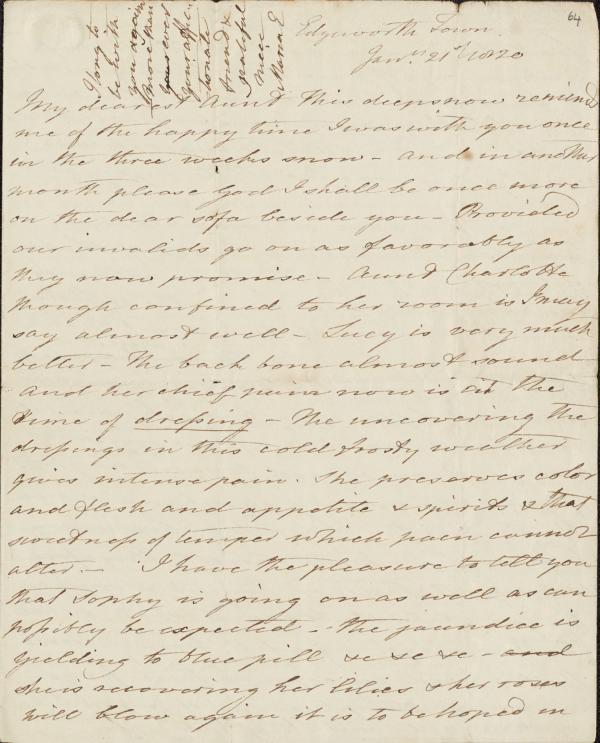 64
Edgeworth Town.
Janry. 21st 1820
My dearest Aunt this deep snow reminds
me of the happy time I was with you once
in the three weeks snow - and in another
month please God I shall be once more
on the dear sofa beside you - Provided
our invalids go on as favorably as
they now promise - Aunt Charlotte
though confined to her room is I may
say almost well - Lucy is very much
better - The back bone almost sound
and her chief pain now is at the
time of dressing - The uncovering the
dressings in this cold frosty weather
gives intense pain. She preserves color
and flesh and appetite & spirits & that
sweetness of temper which pain cannot
alter - I have the pleasure to tell you
that Sophy is going on as well as can
possibly be expected - the jaundice is
yielding to blue pill &c &c &c - and
she is recovering her lilies & her roses
will blow again it is to be hoped in
I long to
be with
you again
more than
ever
your affec
tionate
friend &
grateful
niece
Maria E